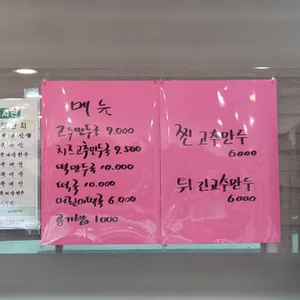 메뉴
고추만두국 9.000
치즈고추만두국 9.500
떡만두국 10.000
떡국 10.000
어린이떡국 6.000
공기밥 1000
찐고추만두
6000
튀긴고추만두
6000